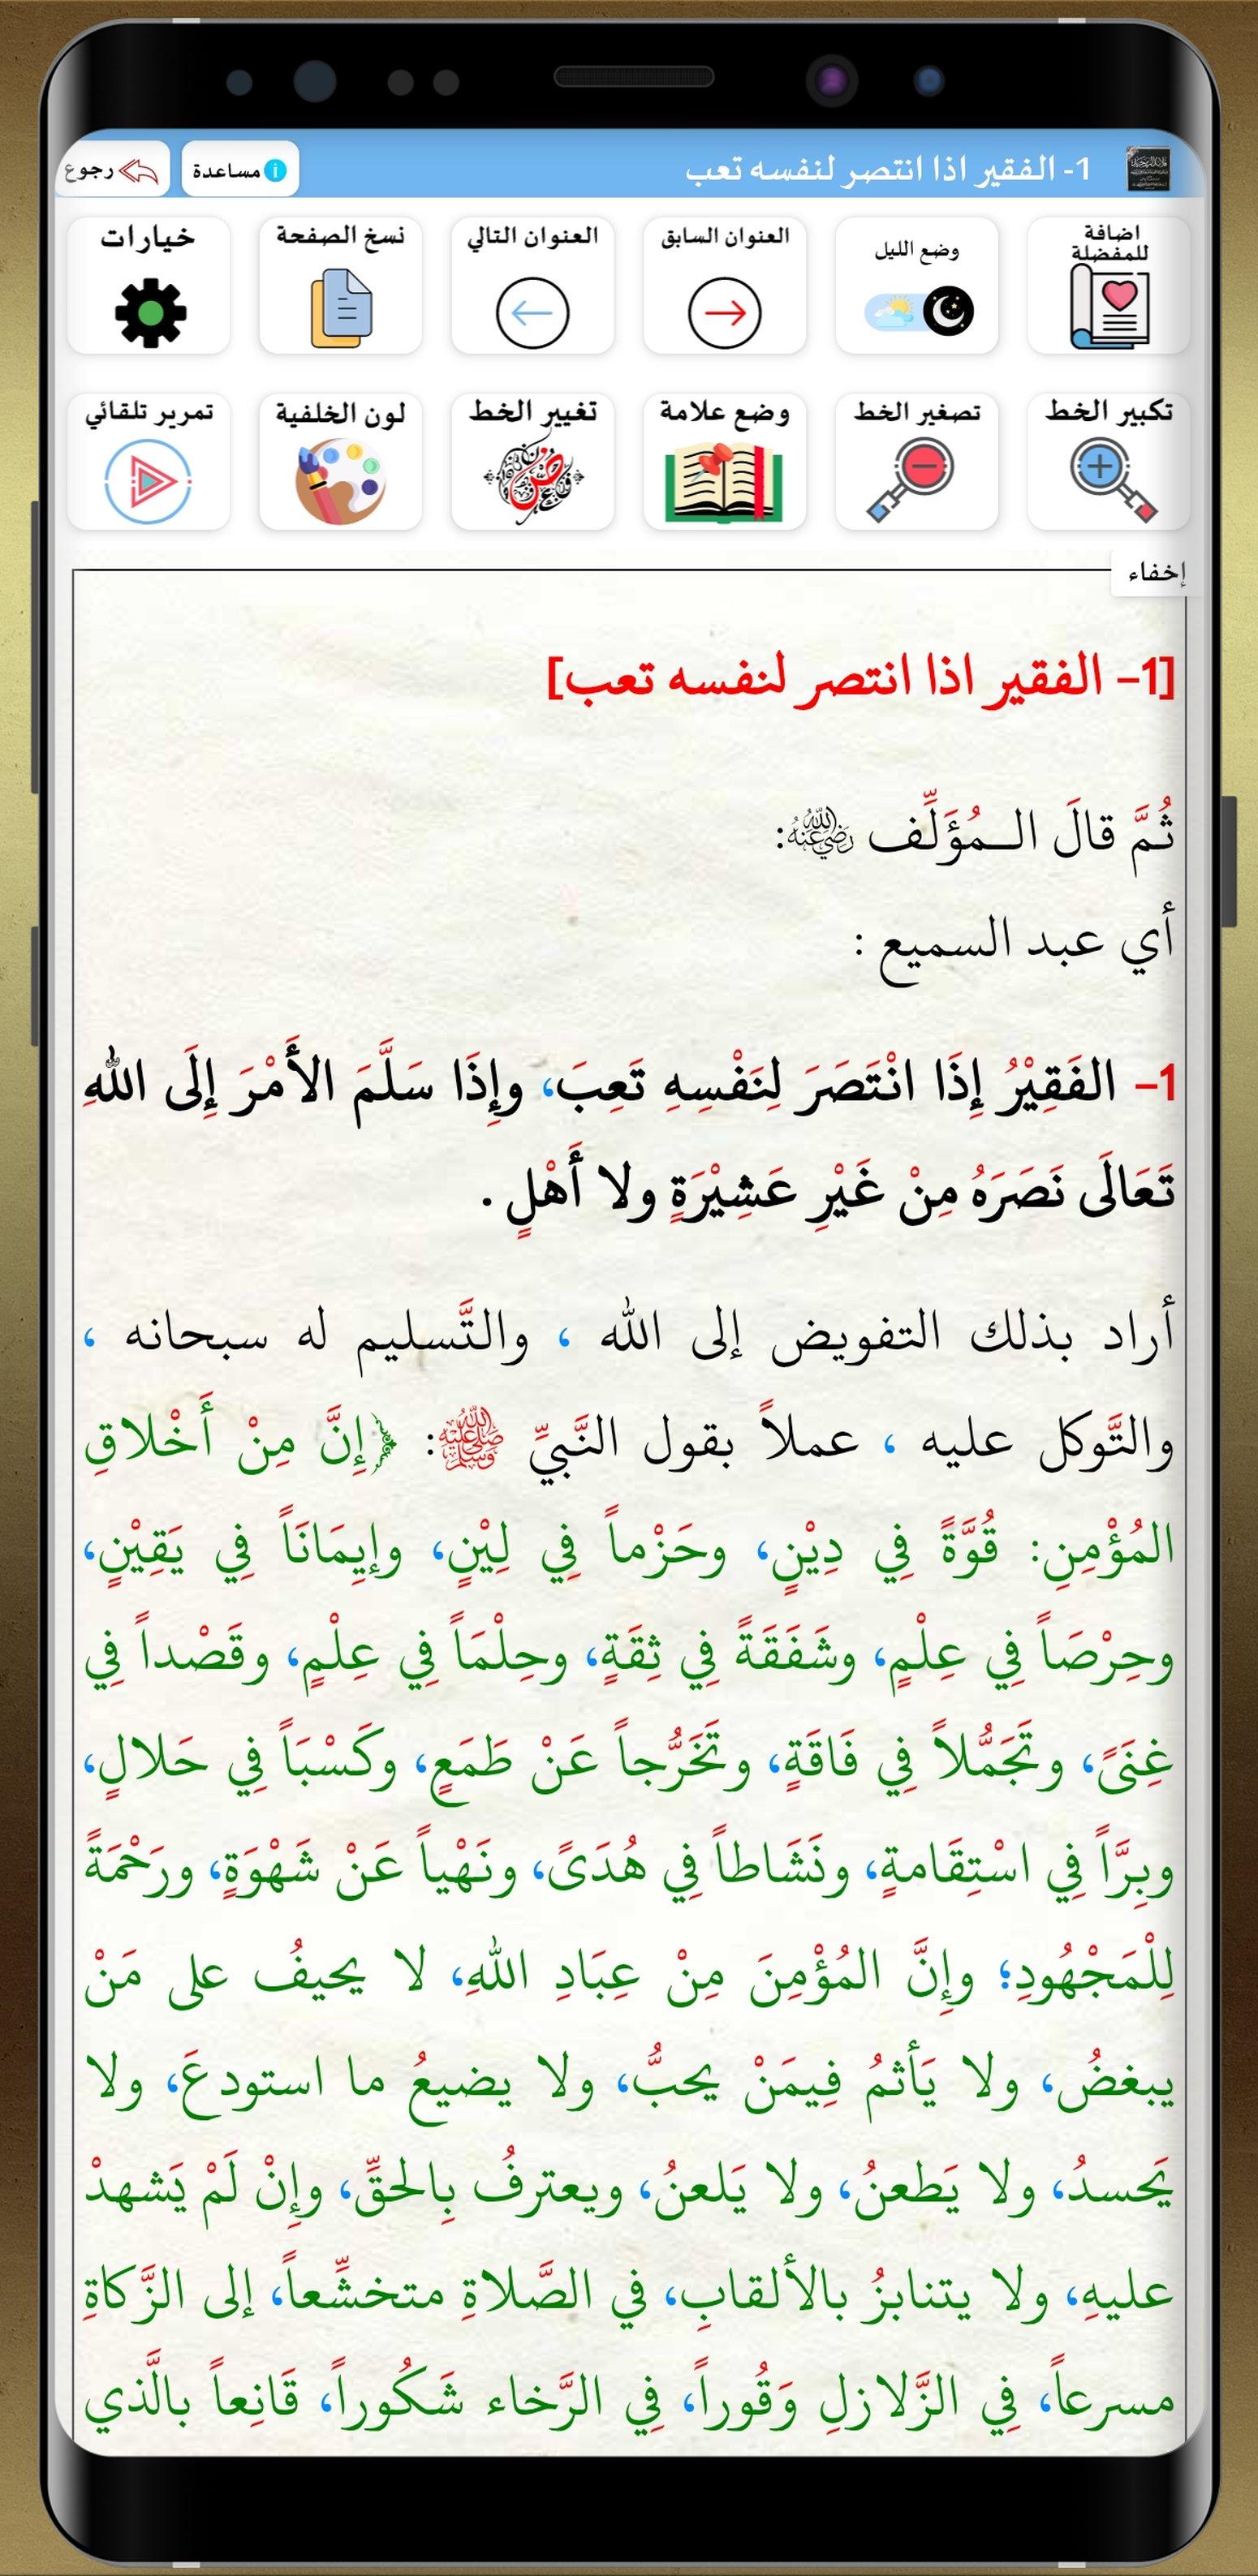 1- الفقير اذا انتصر لنفسه تعب
مساعدة
رجوع
اضافة
للمفضلة
وضع الليل
العنوان السابق
العنوان التالي
نسخ الصفحة
خيارات
تكبير الخط
تصغير الخط
وضع علامة
تغيير الخط
لون الخلفية
تمرير تلقائي
إخفاء
[1– الفقير اذا انتصر لنفسه تعب]
ثُمَّ قالَ الـمُؤَلِّف رضي الله عنه:
أي عبد السميع :
1– الفَقِيْرُ إِذَا انْتَصَرَ لِنَفْسِهِ تَعِبَ، وإِذَا سَلَّمَ الأَمْرَ إِلَى اللهِ
تَعَالَى نَصَرَهُ مِنْ غَيْرِ عَشِيْرَةٍ ولا أَهْلٍ .
أراد بذلك التفويض إلى الله ، والتَّسليم له سبحانه ،
والتَّوكل عليه ، عملاً بقول النَّبيِّ ﷺ: ﴿إِنَّ مِنْ أَخْلاقِ
المُؤْمِنِ: قُوَّةً فِي دِيْنٍ، وحَزْماً فِي لِيْنٍ، وإِيمَانَاً فِي يَقِيْنٍ،
وحِرْصَاً فِي عِلْمٍ، وشَفَقَةً فِي ثِقَةٍ، وحِلْمَاً فِي عِلْمٍ، وقَصْداً فِي
غِنَىً، وتَجَمُّلاً فِي فَاقَةٍ، وتَخَرُّجاً عَنْ طَمَعٍ، وكَسْبَاً فِي حَلالٍ،
وبِرَّاً فِي اسْتِقَامةٍ، ونَشَاطاً فِي هُدَىً، ونَهْياً عَنْ شَهْوَةٍ، ورَحْمَةً
لِلْمَجْهُودِ؛ وإِنَّ المُؤْمِنَ مِنْ عِبَادِ اللهِ، لا يحيفُ على مَنْ
يبغضُ، ولا يَأثمُ فِيمَنْ يحبُّ، ولا يضيعُ ما استودعَ، ولا
يَحسدُ، ولا يَطعنُ، ولا يَلعنُ، ويعترفُ بِالحقِّ، وإِنْ لَمْ يَشهدْ
عليهِ، ولا يتنابزُ بالألقابِ، في الصَّلاةِ متخشِّعاً، إلى الزَّكاةِ
مسرعاً، فِي الزَّلازلِ وَقُوراً، فِي الرَّخاء شَكُوراً، قَانِعاً بالَّذي